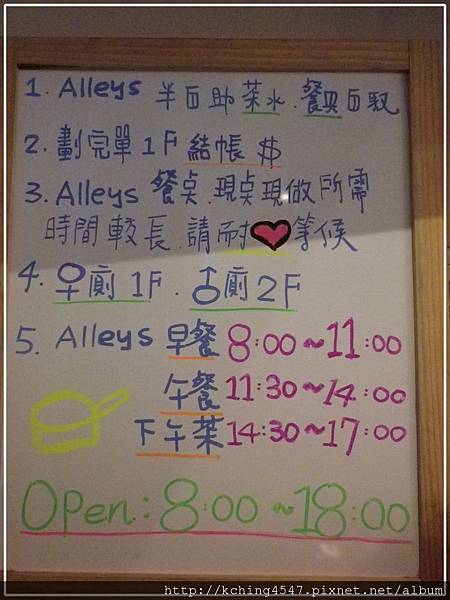 1. Alleys 半自助茶水.餐具自取
2. 劃完單1F結帳$
3. Alleys 餐桌.現桌現做所需
時間較長.請耐♥等候
4. ♀廁1F.♂廁2F
5. Alleys 早餐8:00~11:00
午餐11:30~14:00
下午茶14:30~17:00
Open:8:00~18:00
http://kching4547.pixnet.net/album